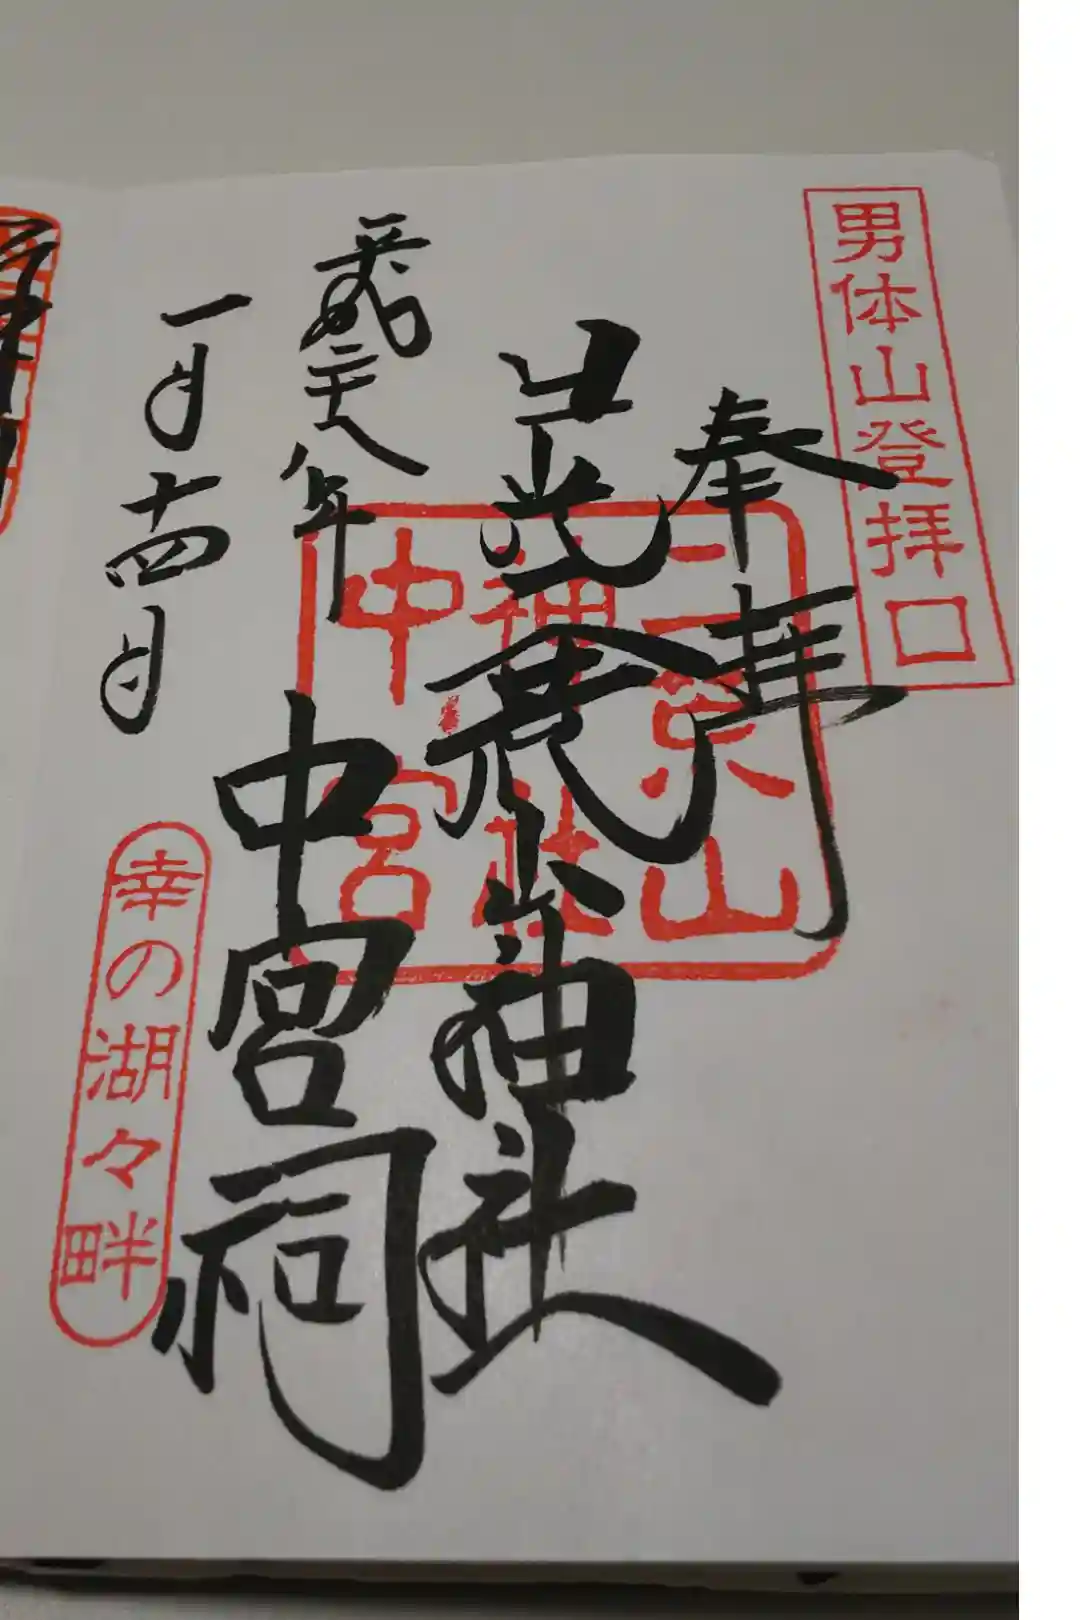 男体山登拝口
奉拝
日光二荒山神社
中宮祠
平成二十八年
一月十四日
二荒山
神社
中宮
幸の湖々畔